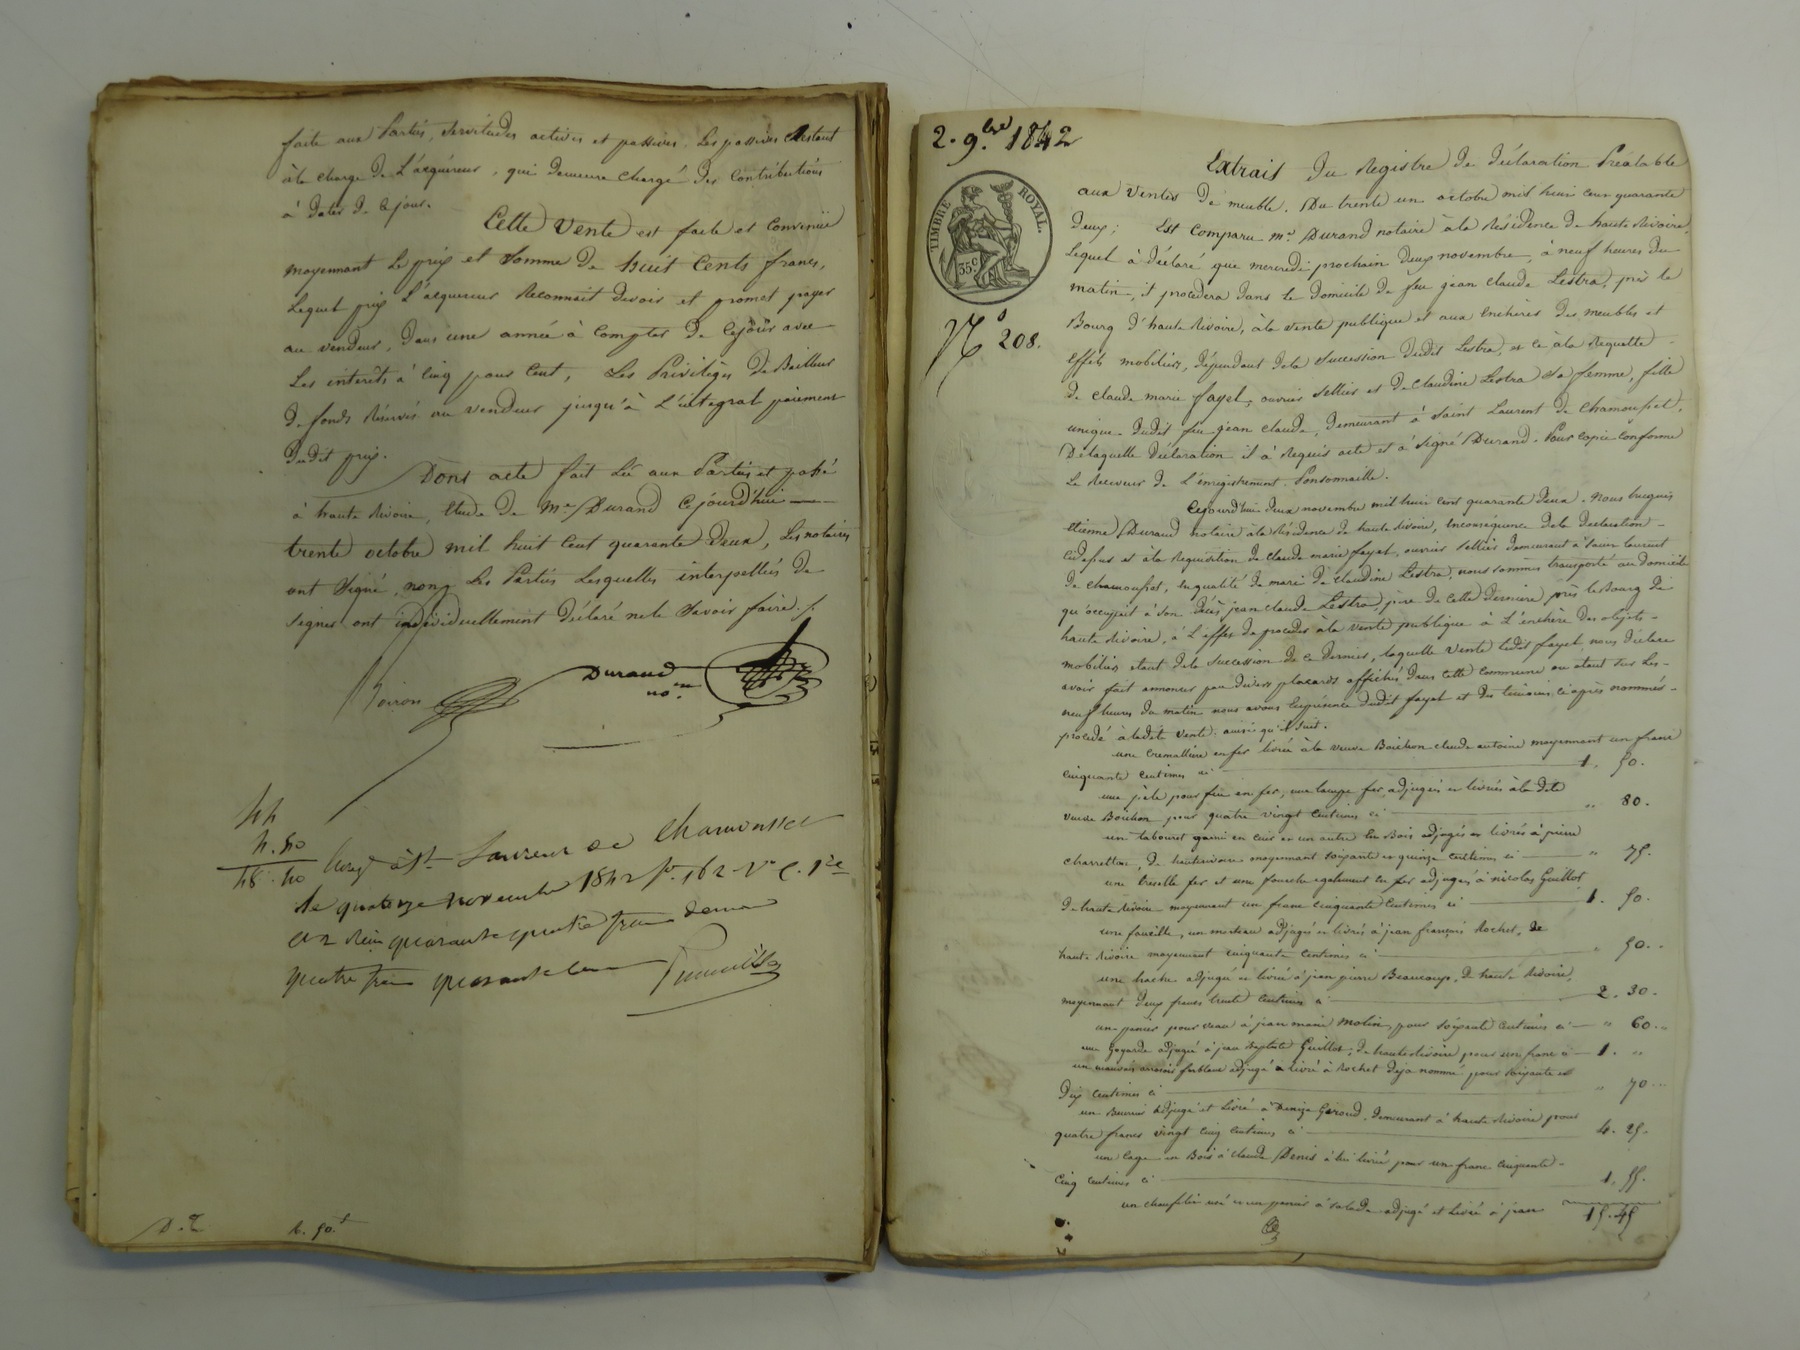 faite aux Parties, servitudes actives et passives, Les passives restant
à la charge de L'acquéreur, qui demeure chargé des Contributions
à dater de ce jour.
Cette Vente est faite et Convenue
moyennant Le prix et somme de huit Cents francs,
Lequel prix L'acquereur Reconnait devoir et promet payer
au vendeur, dans une année à Compter de Cejour avec
Les interêts à Cinq pour Cent, Les Privilèges de Bailleur
de fonds Réservés au vendeur jusqu'à L'intégral paiement
dudit prix.
Dont acte fait Lu aux Parties et passé
à haute Rivoire, Etude de Me. Durand Cejourd'hui
trente octobre mil huit Cent quarante deux, Les notaires
ont signé, non Les Parties Lesquelles interpellées de
signer ont individuellement déclaré ne le savoir faire ./.
Durand
nore.
44
4.40
48.40
à St Laurent de Chamousset
le quatorze novembre 1842 fo. 162 Vo C. 1re
quarante quatre francs
quatre francs quarante
D.2
2. 9.bre 1842
TIMBRE ROYAL.
35c
No 208.
Extrait du Registre de déclaration Préalable
aux Ventes de meuble. Du trente un octobre mil huit cent quarante
deux; Est Comparu me. Durand notaire à la Résidence de haute Rivoire,
Lequel à déclaré que mercredi prochain deux novembre, à neuf heures du
matin, it procedera dans Le domicile de feu jean claude Lestra, près le
Bourg d'haute Rivoire, à la vente publique et aux Enchères des meubles et
Effets mobiliers, dépendant dela succession dudit Lestra, et ce à la Requette
de claude marie fayet, ouvrier sellier et de Claudine Lestra sa femme, fille
unique dudit feu jean claude, demeurant à Saint Laurent de Chamousset,
De laquelle déclaration il à Requis acte et à signé Durand. Pour copie conforme
Le Receveur de L'enregistrement. Ponsonnaille.
Cejourd'hui deux novembre mil huit cent quarante deux. nous
Etienne Durand notaire à la Résidence de haute Rivoire, Enconséquence dela declaration
cidessus et à la Requisition de Claude marie fayet, ouvrier sellier demeurant à saint laurent
de chamousset, En qualité de mari de Claudine Lestra, nous sommes transporté au domicile
qu'occupait à son décès jean claude Lestra, père de Cette dernière près le Bourg de
haute Rivoire, à L'effet de procéder à la vente publique à L'enchère des objets
mobiliers étant dela succession de ce dernier, laquelle Vente ledit fayet nous déclare
avoir fait annoncer par divers placards affichés dans cette Commune ou étant sur Les
neuf heures du matin nous avons Enprésence dudit fayet et des témoins ci après nommés
procédé à ladite vente. ainsi qu'il suit.
une Cremallière en fer livrée à la veuve Boichon claude antoine moyennant un franc
cinquante Centimes ci 1. 50.
une pèle pour feu en fer, une lampe fer, adjugées et livrées à la dite
veuve Boichon pour quatre vingt Centimes ci " 80.
un tabouret garni en cuir et un autre En Bois adjugés et livrés à pierre
charretton, de hauterivoire moyennant soixante et quinze centimes ci " 75.
une truelle fer et une fourche egalement en fer adjugées à nicolas Guillot,
de haute Rivoire moyennant un franc cinquante Centimes ci 1. 50.
une faucille, un morteau adjugés et livrés à jean françois Rochet, de
haute Rivoire moyennant cinquante centimes ci " 50.
une hache adjugée et livrée à jean pierre Beaucoup, de haute Rivoire,
moyennant deux francs trente Centimes ci 2. 30.
un panier pour veau à jean marie Molin, pour soixante Centimes ci " 60.
une Goyarde adjugée à jean Baptiste Guillot, de haute Rivoire pour un franc ci 1. "
un mauvais arrosoir ferblanc adjugé et livré à Rochet deja nommé pour soixante et
dix centimes ci " 70.
un adjugé et Livré à Denize Giroud, demeurant à haute Rivoire pour
quatre francs vingt Cinq Centimes ci 4. 25.
une cage en Bois à claude Denis à lui livrée pour un franc cinquante
cinq centimes ci 1. 55.
un usé et un panier à salade adjugé et Livré à jean 15.45